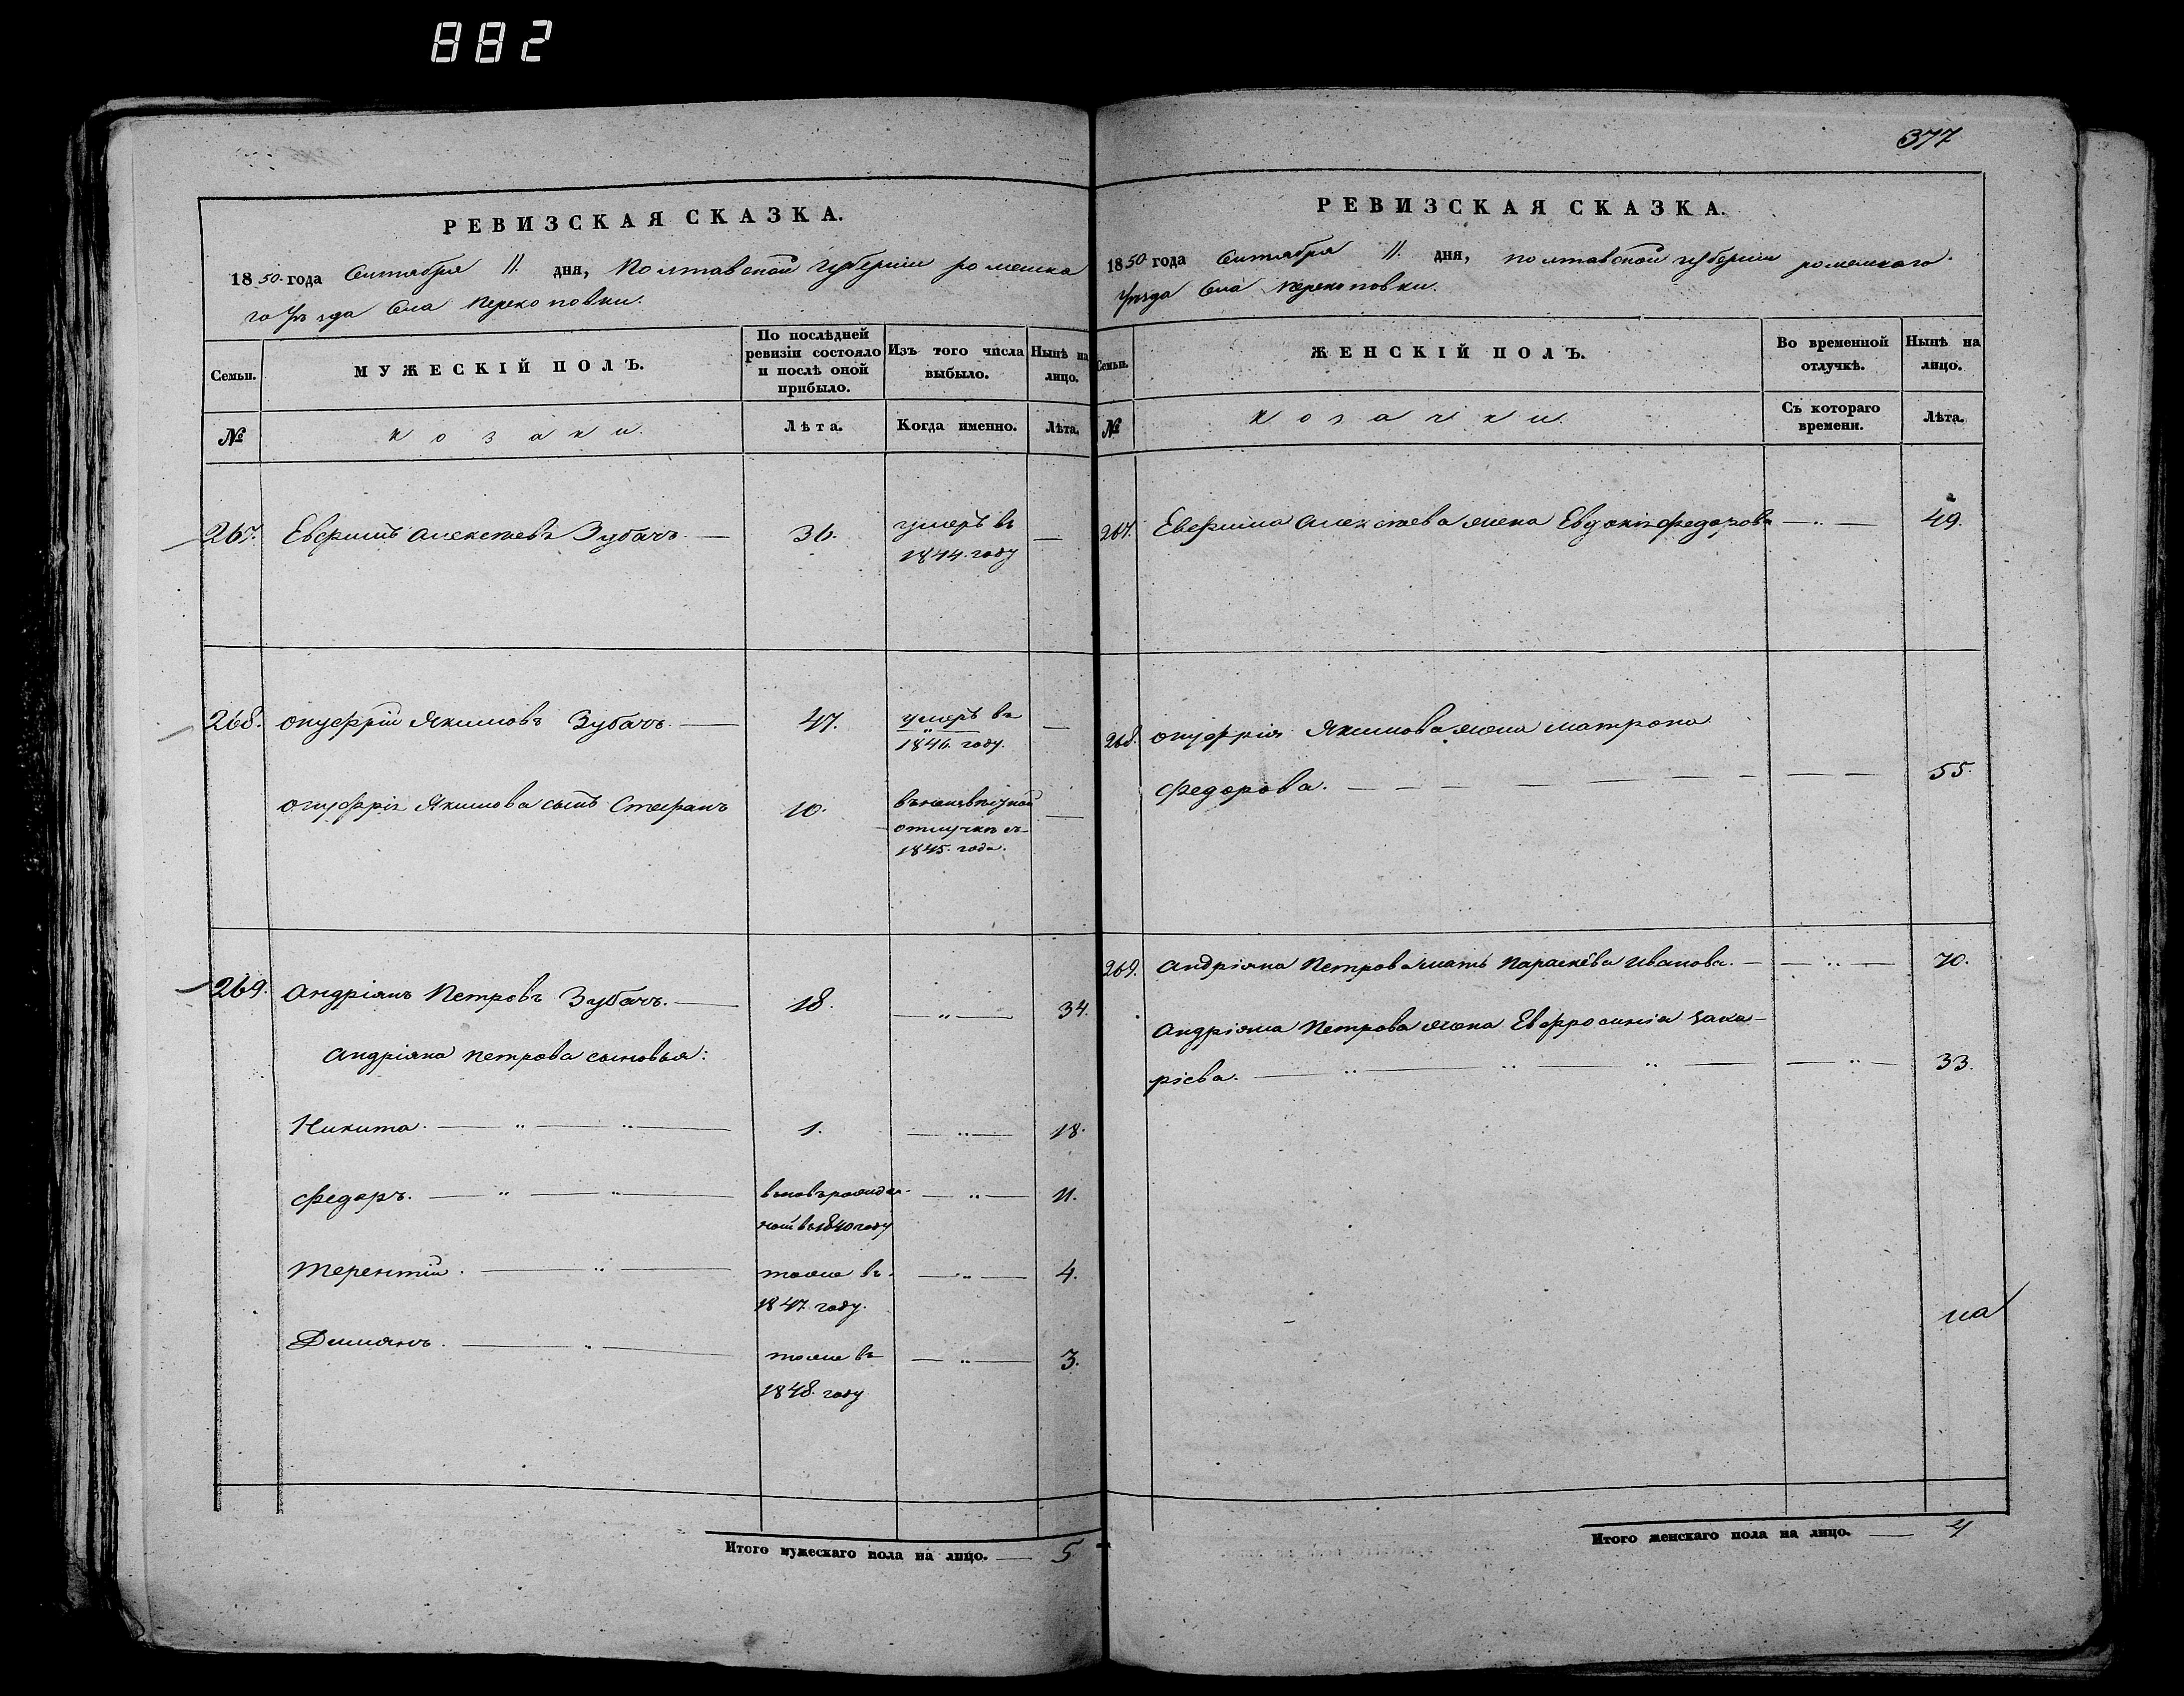 882
РЕВИЗСКАЯ СКАЗКА.
1850 года Сентября 11. дня, Полтавской губернии роменска
го Уѣзда Села Перекоповки.
Семьи.
МУЖЕСКІЙ ПОЛЪ.
По послѣдней ревизіи состояло и послѣ оной прибыло.
Изъ того числа выбыло.
Нынѣ на лицо.
№
козаки.
Лѣта.
Когда именно.
Лѣта.
267. Евфимъ Алексѣевъ Зубачъ. — 36. умеръ въ —
1844. году
268. Онуфрій Якимовъ Зубачъ. — 47. умеръ въ —
1846. году.
Онуфрія Якимова сынъ Стефанъ 10. въ неизвѣстной —
отлучкѣ съ
1845. года.
269. Андріянъ Петровъ Зубачъ. — 18. — „ — 34.
Андріяна Петрова сыновья:
Никита. — „ — „ — 1. — „ — 18.
Федоръ. — „ — „ — вновь рожден- — „ — 11.
ный въ 1840 году
Терентій. — „ — тоже въ — „ — 4.
1847 году.
Демянъ. — „ — тоже въ — „ — 3.
1848. году
Итого мужескаго пола на лицо. — 5
377
РЕВИЗСКАЯ СКАЗКА.
1850 года Сентября 11. дня, полтавской губернии роменского
Уѣзда Села Перекоповки.
Семьи.
ЖЕНСКІЙ ПОЛЪ.
Во временной отлучкѣ.
Нынѣ на лицо.
№
козачки.
Съ котораго времени.
Лѣта.
267. Евфима Алексѣева жена Евдокія федорова — „ — 49.
268. Онуфрія Якимова жена Матрона
федорова. — — — — — — 55.
269. Андріяна Петрова мать Параскева Иванова. — — „ — 70.
Андріяна Петрова жена Евфросинія Заха-
ріева. — „ — „ — „ — — „ — 33.
на
Итого женскаго пола на лицо. — 4